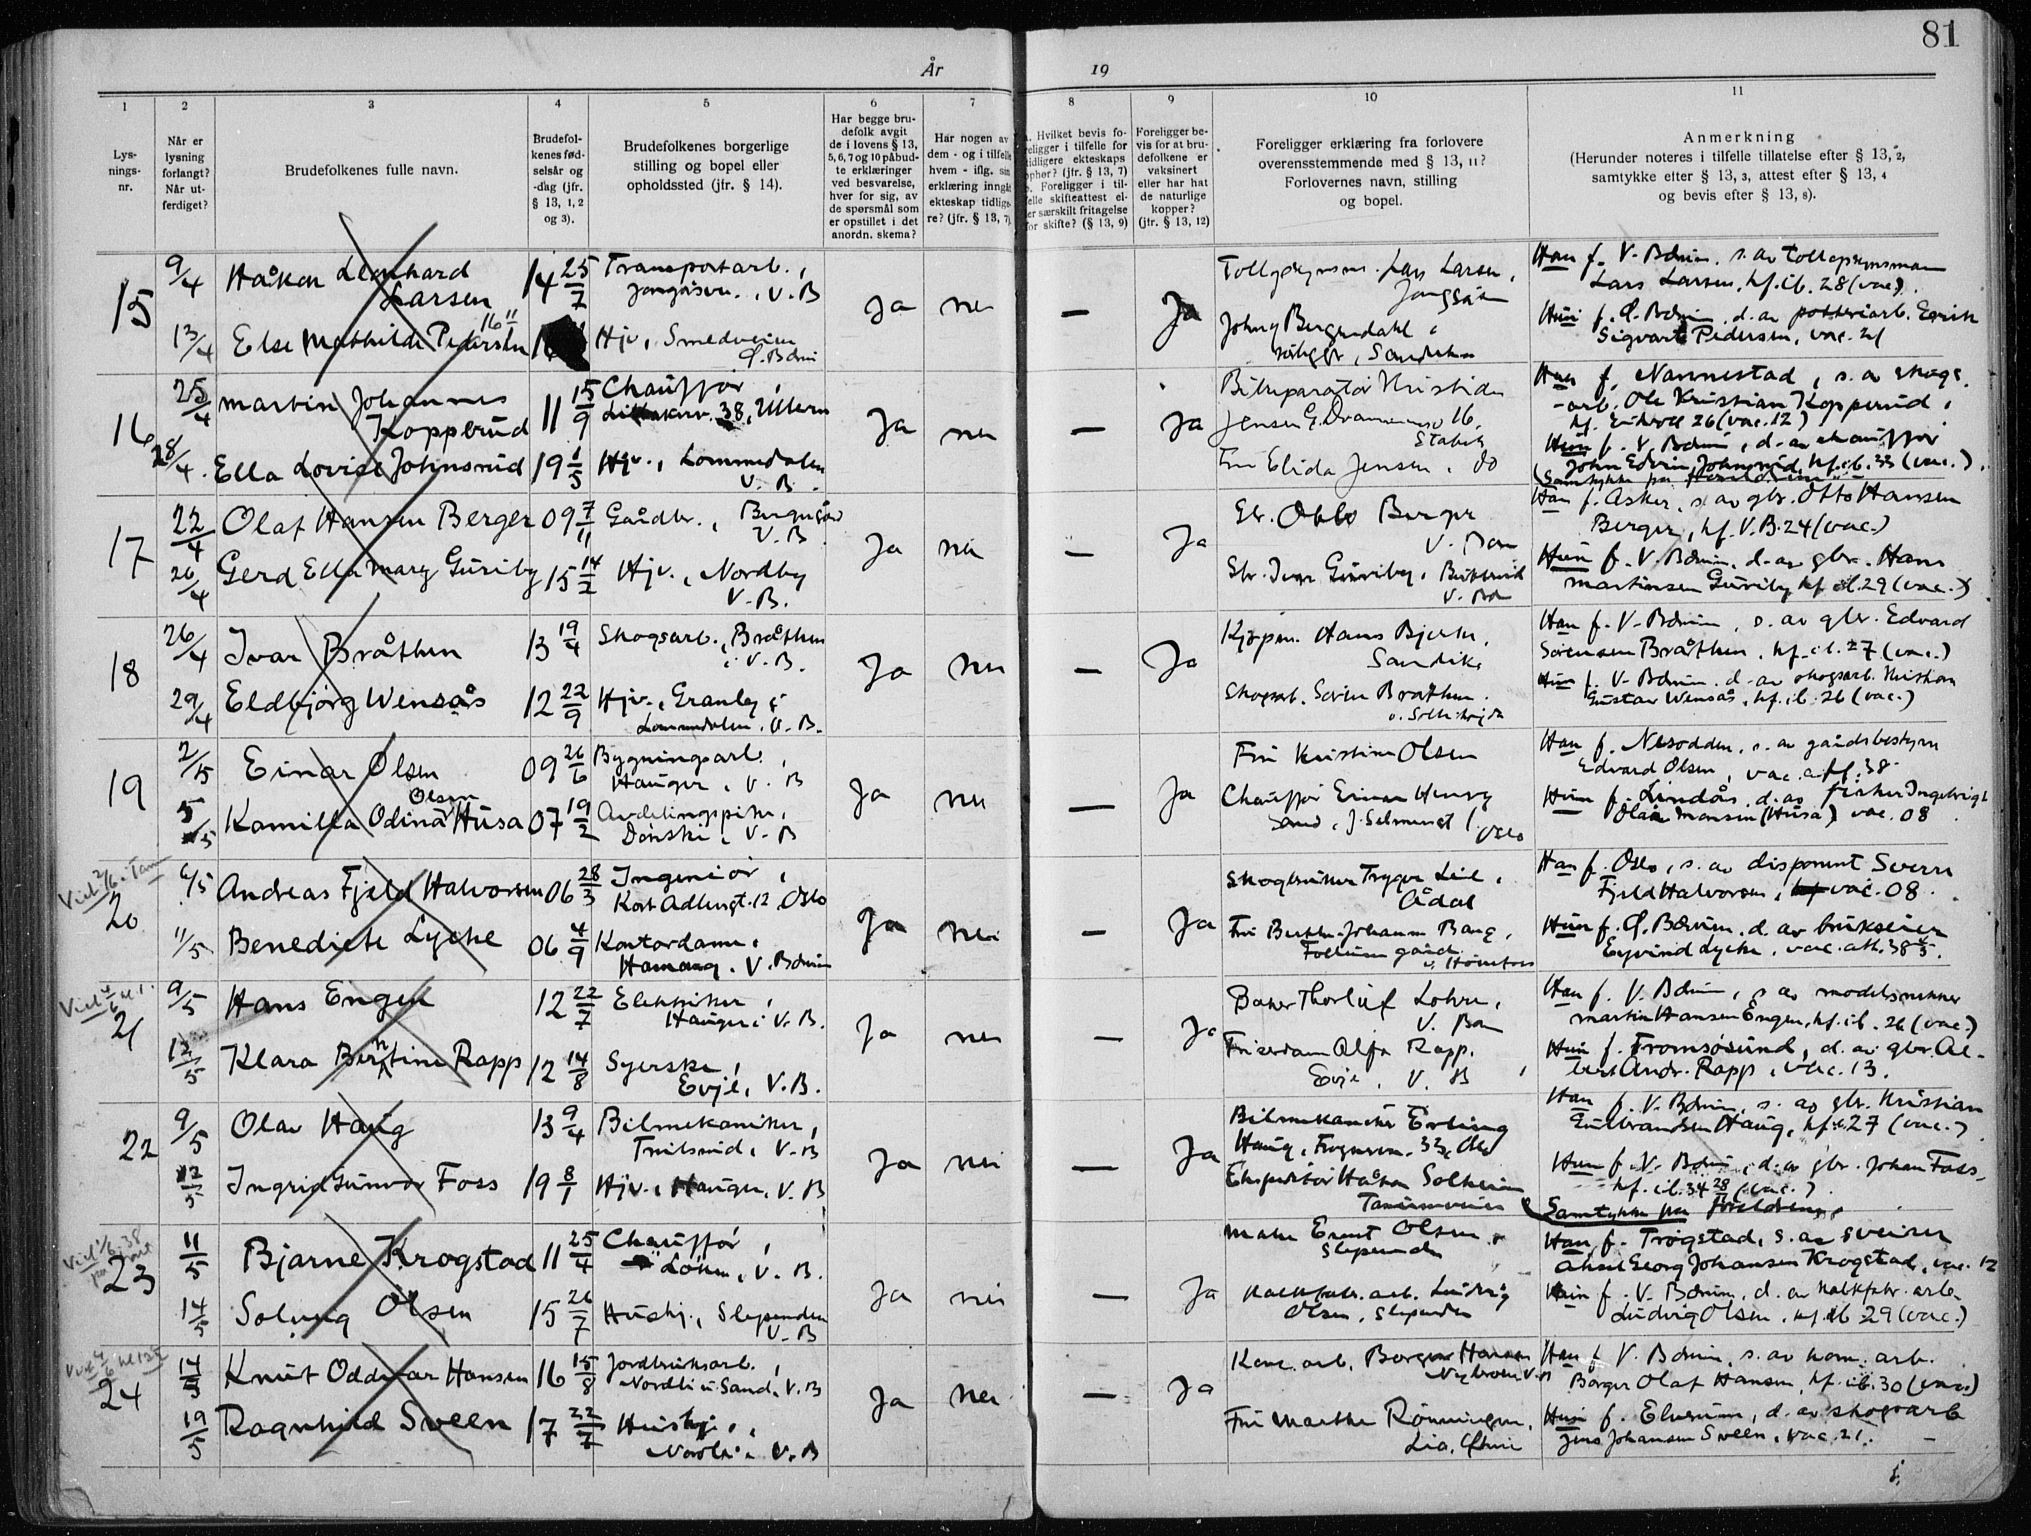 81
År
19
1
2
3
4
5
6
7
8
9
10
11
Lys-
nings-
nr.
Når er
lysning
forlangt?
Når ut-
ferdiget?
Brudefolkenes fulle navn.
Brudefol-
kenes fød-
selsår og
-dag (jfr.
§ 13, 1, 2
og 3).
Brudefolkenes borgerlige
stilling og bopel eller
opholdssted (jfr. § 14).
Har begge bru-
defolk avgit
de i lovens § 13,
5, 6, 7 og 10 påbud-
te erklæringer
ved besvarelse,
hver for sig, av
de spørsmål som
er opstillet i det
anordn. skema?
Har nogen av
dem - og i tilfelle
hvem - iflg. sin
erklæring inngåt
ekteskap tidlige-
re? (jfr. § 13, 7)
Hvilket bevis fo-
religger i tilfelle for
tidligere ekteskaps
ophør? (jfr. § 13, 7)
Foreligger i til-
felle skifteattest el-
ler særskilt fritagelse
for skifte? (§ 13, 9)
Foreligger be-
vis for at bru-
defolkene er
vaksinert
eller har hat
de naturlige
kopper?
(jfr. § 13, 12)
Foreligger erklæring fra forlovere
overensstemmende med § 13, 11?
Forlovernes navn, stilling
og bopel.
Anmerkning
(Herunder noteres i tilfelle tillatelse efter § 13, 2,
samtykke efter § 13, 3, attest efter § 13, 4
og bevis efter § 13, 8).
15
9/4
Håkon Leonhard
Larsen
14 25/7
Transportarb.,
V. B
Ja
nei
—
Ja
Lars Larsen,
Han f. V. Bærum, s. av
Lars Larsen, kf. ib. 28 (vac.).
13/4
Else Mathilde Pedersen
16 11
Hjv.,
Ø. Bærum
Johny Bergendahl
Sandvika
Hun f. Ø. Bærum, d. av
Sigvart Pedersen, vac. 21
16
25/4
Martin Johannes
Kopperud
11 15/9
Chauffør,
38, Ullern
Ja
nei
—
Ja
Bilreparatør Kristian
Jensen
16,
Stabek
Han f. Nannestad, s. av skogs-
arb. Ole Kristian Kopperud,
26 (vac. 12)
28/4.
Ella Lovise Johnsrud
19 1/5
Hjv., Lommedalen
V. B.
Fru Elida Jensen, do
Hun f. V. Bærum, d. av chauffør
John Edvin Johnsrud, kf. ib. 33 (vac.).
Samtykke fra foreldrene
17
22/4
Olaf Hansen Berger
09 7/11
Gårdbr.,
V. B.
Ja
nei
—
Ja
Otto Berger
V. Bær
Han f. Asker, s. av gbr. Otto Hansen
Berger, kf. V. B. 24 (vac.)
26/4
Gerd Ella Mary Guriby
15 14/2
Hjv., Nordby
V. B.
Guriby,
Hun f. V. Bærum, d. av gbr. Hans
Martinsen Guriby, kf. ib. 29 (vac.)
18
26/4
Ivar Bråthen
13 19/4
Skogsarb., Bråthen
i V. B.
Ja
nei
—
Ja
Kjøpm. Hans Bjerke,
Sandvika
Han f. V. Bærum, s. av gbr. Edvard
Sørensen Bråthen, kf. ib. 27 (vac.)
29/4
Eldbjørg Wensås
12 22/9
Hjv., Granby i
Lommedalen, V. B.
Skogsarb. Søren Bråthen.
Hun f. V. Bærum, d. av skogsarb. Kristian
Gustav Wensås, kf. ib. 26 (vac.)
19
2/5
Einar Olsen
09 26/6
Bygningsarb.,
Hauger, V. B
Ja
nei
—
Ja
Fru Kristine Olsen
Han f. Nesodden, s. av gårdsbestyrer
Edvard Olsen, vac. 38
5/5
Kamilla Odina Olsen Husa
07 19/2
Avdelingspike,
V. B
Chauffør Einar Henry
Oslo
Hun f. Lindås, d. av fisker Ingebrigt
Monsen (Husa) vac. 08
Viet 2/6 Tanum
20
6/5
Andreas Fjeld Halvorsen
06 28/3
Ingeniør,
Kort Adlersgt. 12, Oslo
Ja
nei
—
Ja
Skogbruker Trygve Lie,
Ådal
Han f. Oslo, s. av disponent Sverre
Fjeld Halvorsen, vac. 08.
11/5
Benedicte Lyche
06 4/9
Kontordame,
Hamang, V. Bærum
Fru Berthe Johanne Bang,
Follum gård
v/ Hønefoss
Hun f. Ø. Bærum, d. av brukseier
Eyvind Lyche, vac. att. 38
Viet 4/6 kl. 1.
21
9/5
Hans Engen
12 22/7
Elektriker,
Hauger i V. B.
Ja
nei
—
Ja
Baker Thorleif Lohre,
V. Bær
Han f. V. Bærum, s. av modelsnekker
Martin Hansen Engen, kf. ib. 26 (vac.)
12/5
Klara Berntine Rapp
12 14/8
Syerske,
Evje, V. B.
Frisørdame Alfa Rapp,
Evje, V. B
Hun f. Tromsøsund, d. av gbr. Al-
bert Andr. Rapp, vac. 13.
22
9/5
Olav Haug
13 9/4
Bilmekaniker,
V. B
Ja
nei
—
Ja
Bilmekaniker Erling
Haug, 33, Oslo
Han f. V. Bærum, s. av gbr. Kristian
Gulbrandsen Haug, kf. 27 (vac.)
12/5
Ingrid Gunvor Foss
19 8/1
Hjv., Hauger, V. B
Ekspeditør Håkon Solheim
Tanumveien
Hun f. V. Bærum, d. av gbr. Johan Foss,
kf. ib. 34 (vac.).
Samtykke fra foreldrene
Viet 1/6 38
23
11/5
Bjarne Krogstad
11 25/4
Chauffør,
Løken, V. B.
Ja
nei
—
Ja
Maler Ernst Olsen,
Slependen
Han f. Trøgstad, s. av sveiser
Aksel Georg Johansen Krogstad, vac. 12
14/5
Solveig Olsen
15 26/7
Hushj., Slependen
V. B
Kalkfabr. arb. Ludvig
Olsen, Slependen
Hun f. V. Bærum, d. av kalkfabr. arb.
Ludvig Olsen, kf. ib 29 (vac.)
24
14/5
Knut Oddvar Hansen
16 15/8
Jordbruksarb.,
Nordli i Sand., V. B
Ja
nei
—
Ja
Kom. arb. Borger Hansen
V. B
Han f. V. Bærum, s. av kom. arb.
Borger Olaf Hansen, kf. ib. 30 (vac.)
19/5
Ragnhild Sveen
17 22/7
Hushj.,
Nordli, V. B
Fru Marthe Rønningen,
Hun f. Elverum, d. av skogsarb
Jens Johansen Sveen, vac. 21.